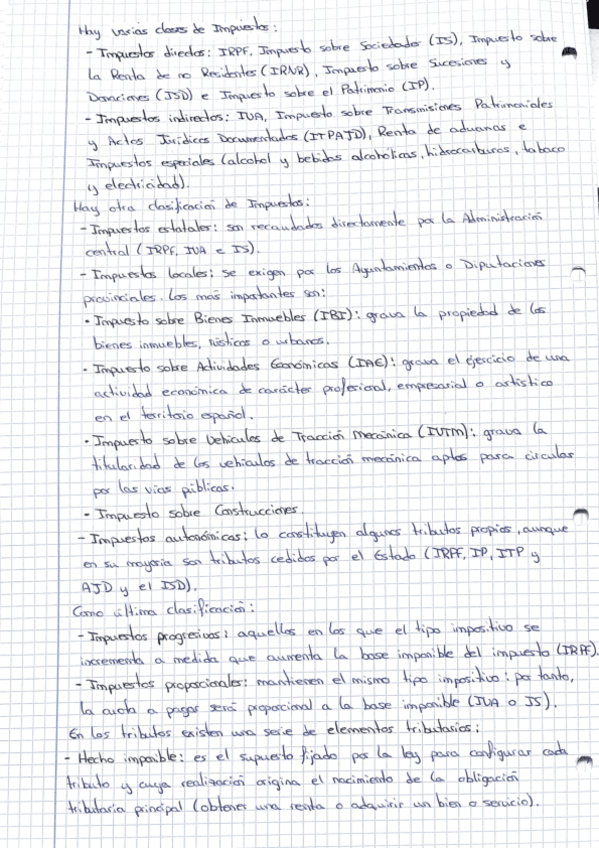 Hay varias clases de Impuestos:
- Impuestos directos: IRPF, Impuesto sobre Sociedades (IS), Impuesto sobre
la Renta de no Residentes (IRNR), Impuesto sobre Sucesiones y
Donaciones (ISD) e Impuesto sobre el Patrimonio (IP).
- Impuestos indirectos: IVA, Impuesto sobre Transmisiones Patrimoniales
y Actos Jurídicos Documentados (ITPAJD), Renta de aduanas e
Impuestos especiales (alcohol y bebidas alcohólicas, hidrocarburos, tabaco
y electricidad).
Hay otra clasificación de Impuestos:
- Impuestos estatales: son recaudados directamente por la Administración
central (IRPF, IVA e IS).
- Impuestos locales: se exigen por los Ayuntamientos o Diputaciones
provinciales. Los más importantes son:
• Impuesto sobre Bienes Inmuebles (IBI): grava la propiedad de los
bienes inmuebles, rústicos o urbanos.
• Impuesto sobre Actividades Económicas (IAE): grava el ejercicio de una
actividad económica de carácter profesional, empresarial o artístico
en el territorio español.
• Impuesto sobre Vehículos de Tracción Mecánica (IVTM): grava la
titularidad de los vehículos de tracción mecánica aptos para circular
por las vías públicas.
• Impuesto sobre Construcciones.
- Impuestos autonómicos: lo constituyen algunos tributos propios, aunque
en su mayoría son tributos cedidos por el Estado (IRPF, IP, ITP y
AJD y el ISD).
Como última clasificación:
- Impuestos progresivos: aquellos en los que el tipo impositivo se
incrementa a medida que aumenta la base imponible del impuesto (IRPF).
- Impuestos proporcionales: mantienen el mismo tipo impositivo; por tanto,
la cuota a pagar será proporcional a la base imponible (IVA o IS).
En los tributos existen una serie de elementos tributarios:
- Hecho imponible: es el supuesto fijado por la ley para configurar cada
tributo y cuya realización origina el nacimiento de la obligación
tributaria principal (obtener una renta o adquirir un bien o servicio).